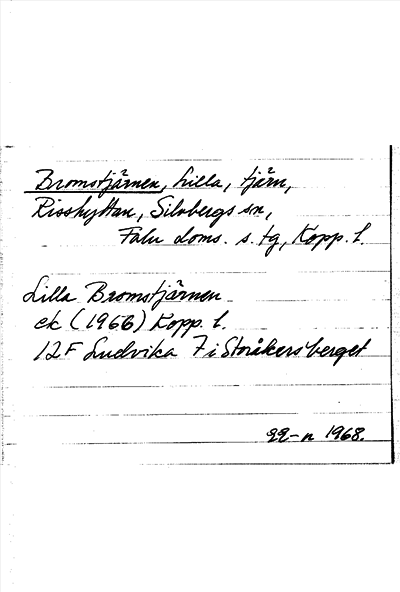 Bromstjärnen, Lilla, tjärn,
Risshyttan, Silvbergs sn,
Falu doms. s. tg, Kopp. l.
Lilla Bromstjärnen
ek (1966) Kopp. l.
12F Ludvika 7 i Storåkersberget
1968.